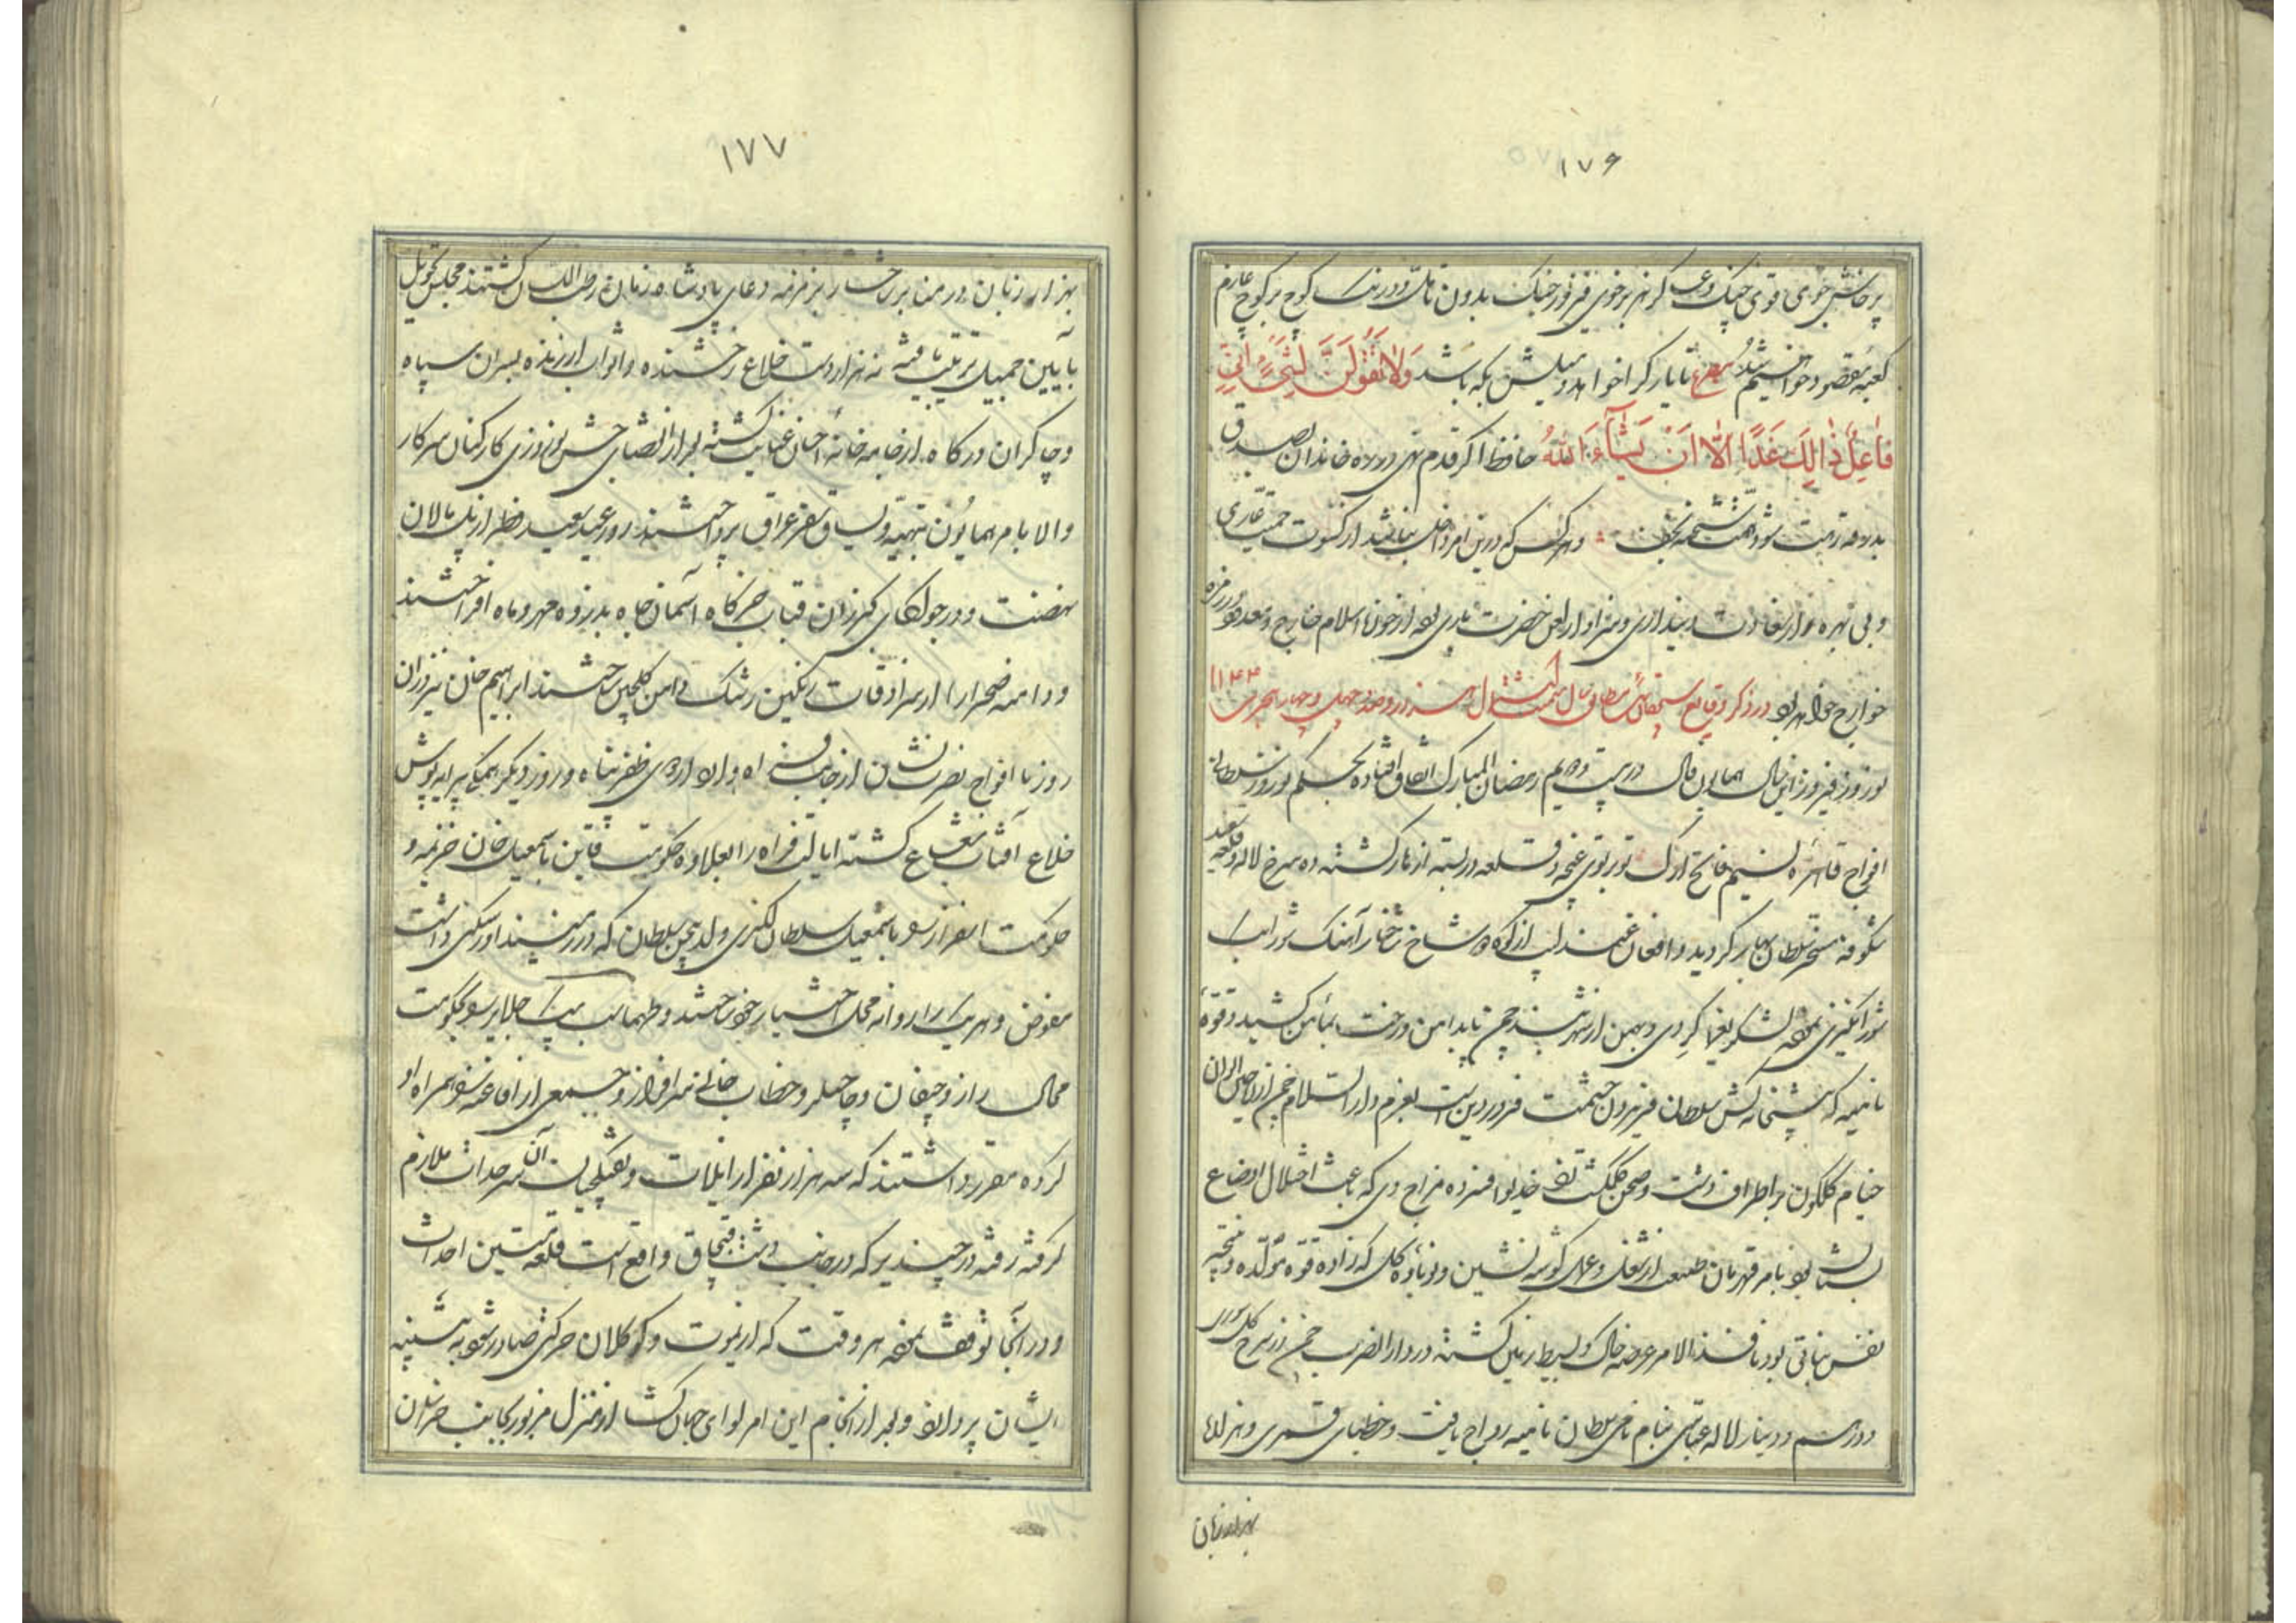 ۱۷۶
پرخاش جوی قوی چنگ و عساکر نهر برخوی فیروز جنگ بدون تامل و درنگ کوچ بر کوچ عازم
کعبهٔ مقصود خواهیم شد مصرع تا یار کرا خواهد و میلش بکه باشد وَلَا تَقُولَنَّ لِشَیْءٍ اِنِّی
فَاعِلٌ ذَالِکَ غَدًا اِلَّا اَنْ یَشَاءَ اللّٰهُ حافظ اگر قدم نهی در راه خاندان بصدق
بدرقهٔ رهت شود همت شحنهٔ نجف و هر کس که درین امر داخل نباشد از کسوت حمیت عاری
و بی بهره از سعادت دینداری و سزاوار لعن حضرت باری بوده از حوزهٔ اسلام خارج و معدود در زمرهٔ
خوارج خواهد بود در ذکر وقایع سیچقان ئیل مطابق سال میمنت اشتمال هزار و صد و چهل و چهار هجری ۱۱۴۴
نوروز فیروز این سال همایون فال در بیست و دویم رمضان المبارک اتفاق افتاده بحکم نوروز سلطانی
افواج قاهرهٔ نسیم فاتح ارک تو بر توی غنچه و قلعه دربسته از نار کشته ده سرخ لاله و قلعه سفید
شکوفه مسخر سلطان بهار گردید و افغان عندلیب از کوه و شاخ شاخسار آهنگ شور است
شور انگیزی نموده لشکر یغماگر دی و بهمن از شهر بند چمن تا بدامن درخت بمأمن کشید و قوهٔ
نامیه که پیشخانه کش سلطان فریدون حشمت فروردین است بعزم دارالسلام چمن از ریاحین الوان
خیام گلگون بر اطراف دشت و صحن گلگشت زده خدیو افسرده مزاج دی که باعث اختلال اوضاع
بستان بود بامر قهرمان طبیعت از شغل و عمل گوشه نشین و نوباوهٔ گل که زادهٔ قوهٔ مولده و نتیجه
نفس نباتی بود نافذ الامر عرصهٔ خاک و بسیط زمین گشته در دارالضرب چمن زر سرخ گل سوری
و درهم و دینار لاله عباسی بنام نامی سلطان نامیه رواج یافت و خطبای قمری و هزار
بهزار زبان
۱۷۷
بهزار زبان در منابر شاخسار بزمزمه دعای پادشاه زمان رطب اللسان گشتند مجلس تحویل
بآیین جمیل ترتیب یافته نه هزار دست خلاع رخشنده و اثواب ارزنده بسران سپاه
و چاکران درگاه از جامه خانهٔ احسان عنایت گشته بعد از انقضای جشن نوروزی کارکنان سرکار
والا بامر همایون بتهیه و یساق سفر عراق پرداختند روز عید سعید فطر از پل مالان
نهضت و در جولگای کبرزان قباب خرگاه آسمان جاه بذروه مهر و ماه افراختند
و دامنهٔ صحرا را از سرادقات رنگین رشک دامن گلچین ساختند ابراهیم خان نیز در آن
روز با افواج نصرت نشان از جانب فراه وارد اردوی ظفر پناه و روز دیگر همگی پیرایه پوش
خلاع آفتاب شعاع گشته ایالت فراه را بعلاوه حکومت قاین باسمعیل خان خزیمه و
حکومت اسفزار بود باسمعیل سلطان لکزی ولد یحیی سلطان که در زمین داور سکنی داشت
مفوض و هر یک را روانه محل اختیار خود ساختند و طهماسب بیک جلایر بود بحکومت
محال راز و چیغان و چاچیلر و خطاب خانی سرافراز و جمعی از افاغنه نیز همراه او
کرده مقرر داشتند که سه هزار نفر از ایلات و تفنگچیان آن سرحدات ملازم
گرفته رفته در چندیر که در جانب دشت قبچاق واقع است قلعه متین احداث
و در آنجا توقف نموده هر وقت که از یموت و کوکلان حرکتی صادر شود به تنبیه
ایشان پردازد و بعد از انجام این امر لوای جهان گشا از منزل مزبور بجانب خراسان